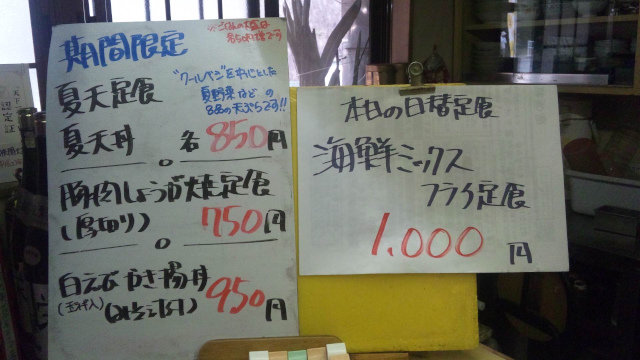 期間限定
※ごはんの大盛は
夏天定食
"クールベジ"を中心とした
夏野菜などの
8品の天ぷらです!!
夏天丼 各850円
豚肉しょうが焼定食
(厚切り) 750円
白えびかき揚丼
950円
本日の日替定食
海鮮ミックス
フライ定食
1,000円